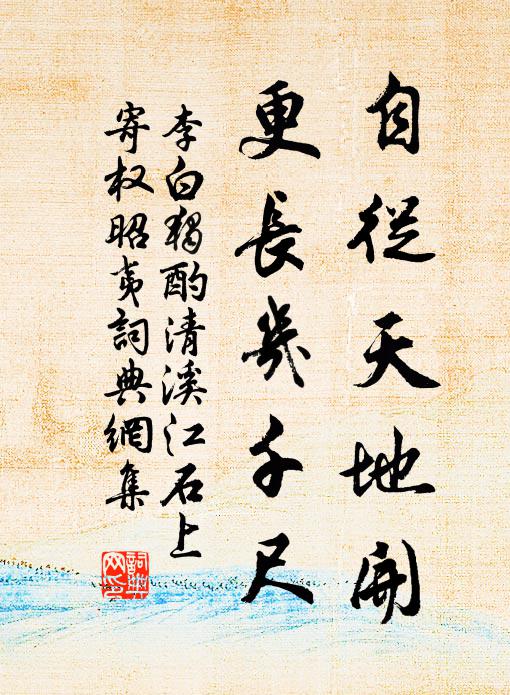 自從天地開
更長幾千尺
李白獨酌清溪江石上
寄权昭夷詞典網集
詞典
网